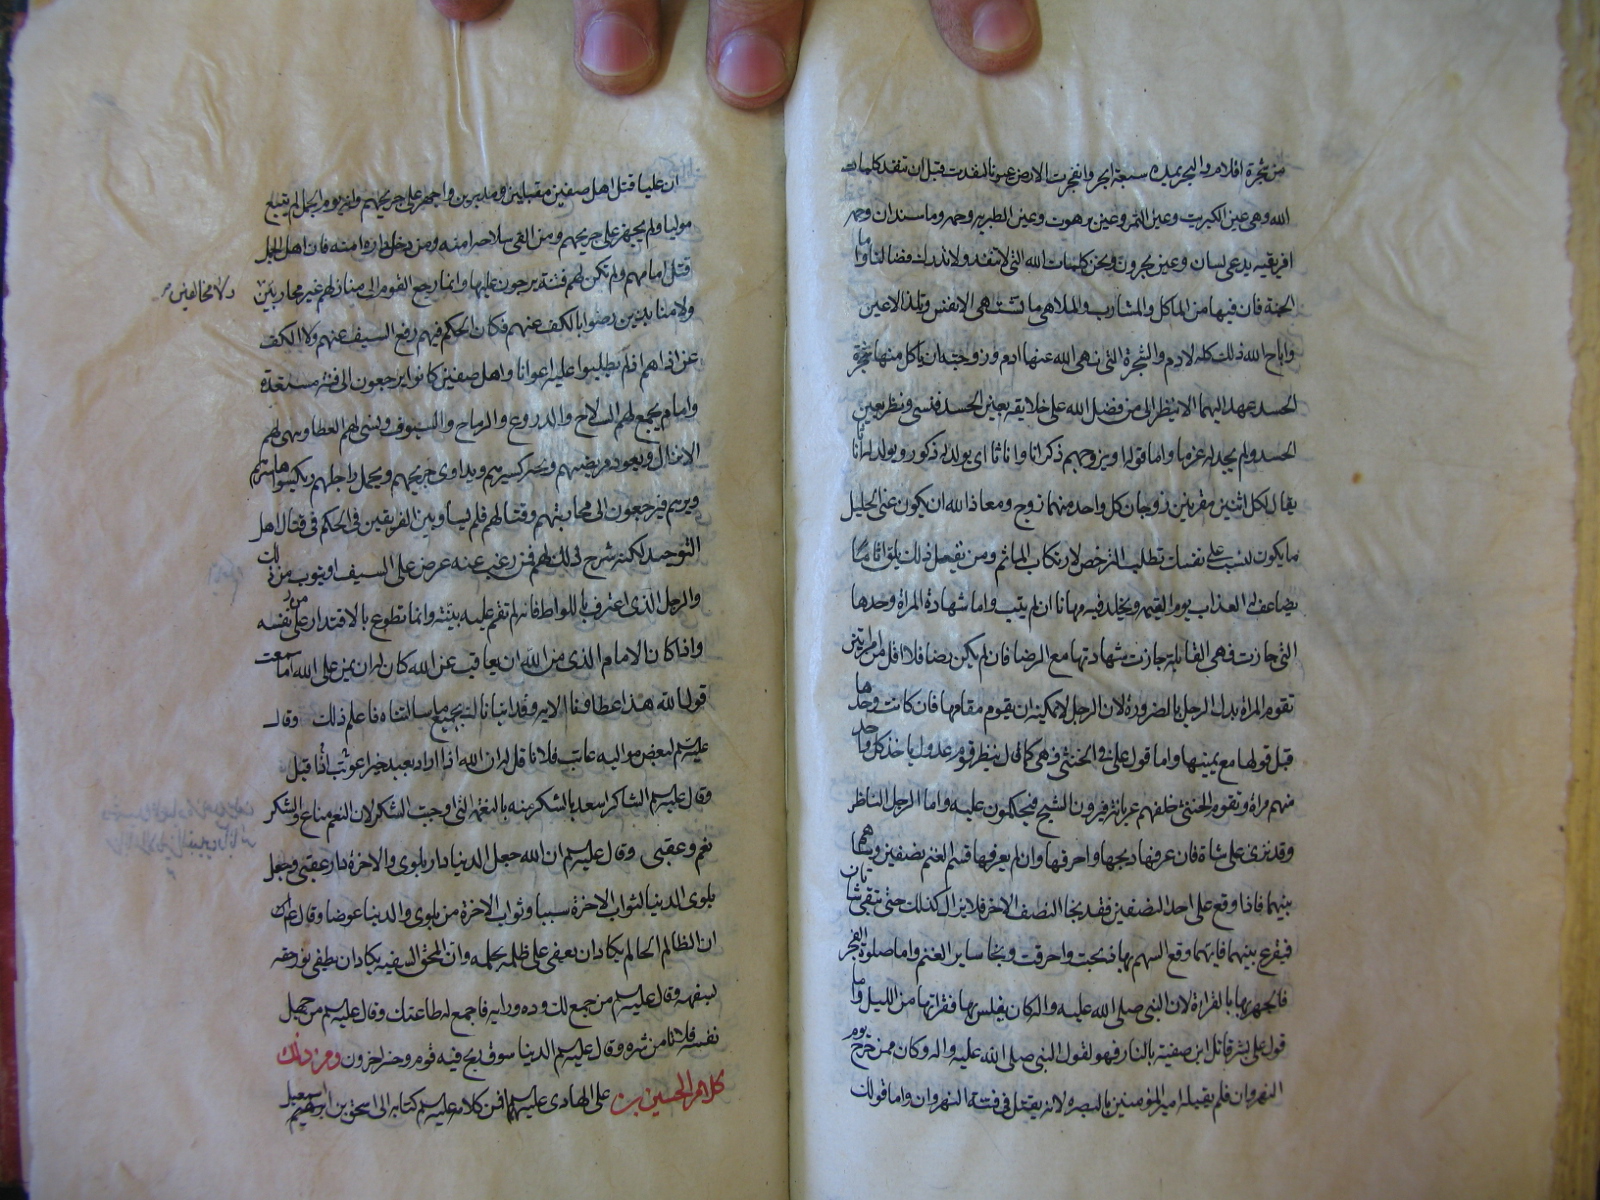 من شجرة اقلام والبحر يمده سبعة ابحر وانفجرت الارض عيونا لنفدت قبل ان تنفد كلمات
الله وهى عين الكبريت وعين النمر وعين برهوت وعين الطبريه وحمه وماسندان وحمه
افريقيه يدعى لسان وعين بحرون ونحن كلمات الله التى لا تنفد ولا تدرك فضائلنا واما
الجنة فان فيها من الماكل والمشارب والملاهى ما تشتهى الانفس وتلذ الاعين
واباح الله ذلك كله لادم والشجرة التى نهى الله عنها ادم وزوجته ان ياكل منها شجرة
الحسد عهد اليهما الا ينظرا الى من فضل الله على خلايقه بعين الحسد فنسى ونظر بعين
الحسد ولم يجد له عزما واما قوله او يزوجهم ذكرانا واناثا اى يولد له ذكور ويولد له اناث
يقال لكل اثنين مقرنين زوجان كل واحد منهما زوج ومعاذ الله ان يكون عنى الجليل
ما يكون لبست على نفسك تطلب الرخص لارتكاب الماثم ومن يفعل ذلك يلق اثاما
يضاعف له العذاب يوم القيمه ويخلد فيه مهانا ان لم يتب واما شهادة المراة وحدها
التى جازت فهى القابلة جازت شهادتها مع الرضا فان لم يكن رضا فلا اقل من امراتين
تقوم المراة بدل الرجل بالضرورة لان الرجل لا يمكنه ان يقوم مقامها فان كانت وحدها
قبل قولها مع يمينها واما قول على فى الخنثى فهى كما قال ينظر قوم عدول ياخذ كل واحد
منهم مراة وتقوم الخنثى خلفهم عريانة فيرون الشبح فيحكمون عليه واما الرجل الناظر
وقد نزى على شاة فان عرفها ذبحها واحرقها وان لم يعرفها قسم الغنم نصفين وساهم
بينهما فاذا وقع على احد النصفين فقد نجا النصف الاخر فلا يزال كذلك حتى تبقى شاتان
فيقرع بينهما فايتهما وقع السهم بها ذبحت واحرقت ونجا ساير الغنم واما صلوة الفجر
فالجهر بها بالقراة لان النبى صلى الله عليه واله كان يغلس بها فقراتها من الليل واما
قول على بشر قاتل ابن صفية بالنار فهو لقول النبى صلى الله عليه واله وكان ممن خرج يوم
النهروان فلم يقتله امير المؤمنين بالبصره لانه يقتل فى فتنة النهروان واما قولك
ان عليا قتل اهل صفين مقبلين ومدبرين واجهز على جريحهم وانه يوم الجمل لم يتبع
موليا ولم يجهز على جريحهم ومن القى سلاحه امنه ومن دخل داره امنه فان اهل الجمل
قتل امامهم ولم تكن لهم فئة يرجعون عليها وانما رجع القوم الى منازلهم غير محاربين
ولا مخالفين
ولا منابذين رضوا بالكف عنهم فكان الحكم فيهم رفع السيف عنهم ولا الكف
عن اذاهم اذ لم يطلبوا عليه اعوانا واهل صفين كانوا يرجعون الى فئة مستعدة
وامام يجمع لهم السلاح والدروع والرماح والسيوف ويسنى لهم العطا ويهى لهم
الانزال ويعود مريضهم ويجبر كسيرهم ويداوى جريحهم ويحمل راجلهم ويكسوا حاسرهم
ويردهم فيرجعون الى محاربتهم وقتالهم فلم يساو بين الفريقين فى الحكم فى قتال اهل
التوحيد لكنه شرح ذلك لهم فمن رغب عنه عرض على السيف او يتوب من ذلك
والرجل الذى اعترف باللواط فانه لم تقم عليه بينة وانما تطوع بالاقتدار على نفسه
واذا كان الامام الذى من الله ان يعاقب عن الله كان له ان يمن على الله اما سمعت
قول الله هذا عطاؤنا الايه وقد انبانا لك بجميع ما سالتناه فاعلم ذلك وقال
عليه السلم لبعض مواليه عاتب فلانا قل له ان الله اذا اراد بعبد خيرا عوتب اذا قبل
وقال عليه السلم الشاكر اسعد بالشكر منه بالنعمة التى اوجبت الشكر لان النعم متاع والشكر
نعم وعقبى وقال عليه السلم ان الله جعل الدنيا دار بلوى والاخرة دار عقبى وجعل
بلوى الدنيا لثواب الاخرة سببا وثواب الاخرة من بلوى والدنيا عوضا وقال
ان الظالم الحالم يكاد ان يعفى على ظلمه بحلمه وان المحق السفيه يكاد ان يطفى نور حقه
بسفهه وقال عليه السلم من جمع لك وده ورايه فاجمع له طاعتك وقال عليه السلم من
نفسه فلا تامن شره وقال عليه السلم الدنيا سوق ربح فيه قوم وخسر اخرون ومن ذلك
كلام الحسين بن على الهادى عليهما فمن كلامه عليه السلم كتابه الى اسحق بن اسمعيل